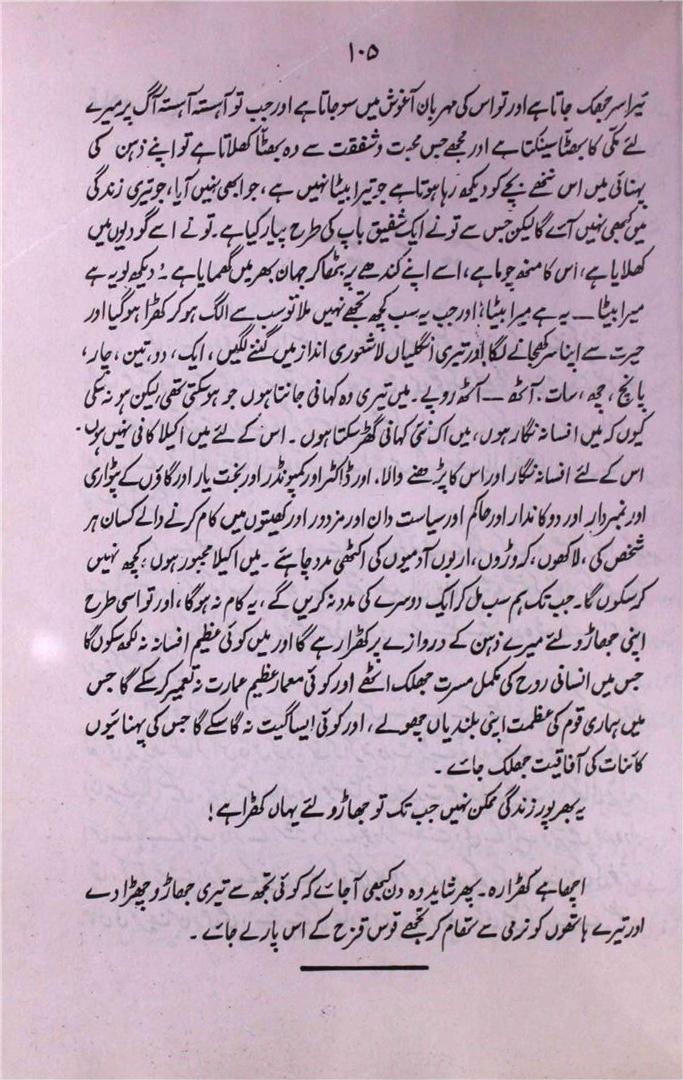 ۱۰۵
تیرا سر جھک جاتا ہے اور تو اس کی مہربان آغوش میں سو جاتا ہے اور جب تو آہستہ آہستہ آگ پر میرے
لئے مکی کا بھٹا سینکتا ہے اور مجھے جس محبت و شفقت سے وہ بھٹا کھلاتا ہے تو اپنے ذہن کی
پہنائی میں اس ننھے بچے کو دیکھ رہا ہوتا ہے جو تیرا بیٹا نہیں ہے، جو ابھی نہیں آیا، جو تیری زندگی
میں کبھی نہیں آئے گا لیکن جس سے تو نے ایک شفیق باپ کی طرح پیار کیا ہے۔ تو نے اسے گودیوں میں
کھلایا ہے، اس کا منھ چوما ہے، اسے اپنے کندھے پر بٹھا کر جہان بھر میں گھمایا ہے۔ ؛ دیکھ لو یہ ہے
میرا بیٹا ــ یہ ہے میرا بیٹا؛ اور جب یہ سب کچھ تجھے نہیں ملا تو سب سے الگ ہو کر کھڑا ہو گیا اور
حیرت سے اپنا سر کھجانے لگا اور تیری انگلیاں لاشعوری انداز میں گننے لگیں، ایک، دو، تین، چار،
پانچ، چھ، سات، آٹھ ــ آٹھ روپے۔ میں تیری وہ کہانی جانتا ہوں جو ہو سکتی تھی لیکن ہو نہ سکی
کیوں کہ میں افسانہ نگار ہوں، میں اک نئی کہانی گھڑ سکتا ہوں۔ اس کے لئے میں اکیلا کافی نہیں ہوں۔
اس کے لئے افسانہ نگار اور اس کا پڑھنے والا، اور ڈاکٹر اور کمپونڈر اور بخت یار اور گاؤں کے پٹواری
اور نمبردار اور دوکاندار اور حاکم اور سیاست دان اور مزدور اور کھیتوں میں کام کرنے والے کسان ہر
شخص کی، لاکھوں، کروڑوں، اربوں آدمیوں کی اکٹھی مدد چاہئے۔ میں اکیلا مجبور ہوں؛ کچھ نہیں
کر سکوں گا۔ جب تک ہم سب مل کر ایک دوسرے کی مدد نہ کریں گے، یہ کام نہ ہوگا، اور تو اسی طرح
اپنی جھاڑو لئے میرے ذہن کے دروازے پر کھڑا رہے گا اور میں کوئی عظیم افسانہ نہ لکھ سکوں گا
جس میں انسانی روح کی مکمل مسرت جھلک اٹھے اور کوئی معمار عظیم عمارت نہ تعمیر کر سکے گا جس
میں ہماری قوم کی عظمت اپنی بلندیاں چھولے، اور کوئی ایسا گیت نہ گا سکے گا جس کی پہنائیوں
کائنات کی آفاقیت جھلک جائے۔
یہ بھرپور زندگی ممکن نہیں جب تک تو جھاڑو لئے یہاں کھڑا ہے!
اچھا ہے کھڑا رہ۔ پھر شاید وہ دن کبھی آ جائے کہ کوئی تجھ سے تیری جھاڑو چھڑا دے
اور تیرے ہاتھوں کو نرمی سے تھام کر تجھے قوس قزح کے اس پار لے جائے۔